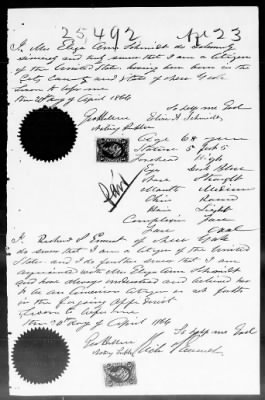 25,492 Apl 23
I, Mrs Eliza Ann Schmidt do solemnly
swear that I am a Citizen
of the United States, having been born in the
City County and State of New York
Sworn to before me
this 20 day of April 1864
So help me God
Eliza A Schmidt,
Notary Public
Age 68 years
Stature 5 feet 5
Forehead High
Eyes Dark Blue
Nose Straight
Paid
Mouth Medium
Chin Round
Hair Light
Complexion Fair
Face Oval
I, Richard S Emmet of New York
do swear that I am a Citizen of the United
States and I do further swear that I am
acquainted with Mrs Eliza Ann Schmidt
and have always understood and believed her
to be an American Citizen as set forth
in the foregoing Affidavit
Sworn to before me
this 20 day of April 1864
So help me God
Notary Public